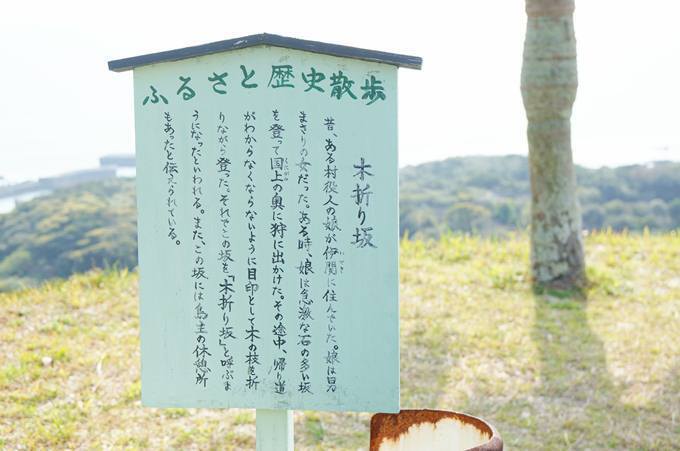 ふるさと歴史散歩
木折り坂
昔、ある村役人の娘が伊関に住んでいた。娘は男
まさりの女だった。ある時、娘は急激な石の多い坂
を登って国上の奥に狩に出かけた。その途中、帰り道
がわからなくならないように目印として木の枝を折
りながら登った。それでこの坂を「木折り坂」と呼ぶよ
うになったといわれる。また、この坂には島主の休憩所
もあったと伝えられている。